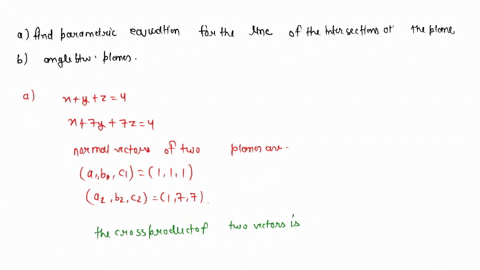 a) find parametric equation for the line of the intersections of the plane,
b) angle btw. planes.
a) x+y+z=4
x+7y+7z=4
normal vectors of two planes are-
(a₁,b₁,c₁)=(1,1,1)
(a₂,b₂,c₂)=(1,7,7).
the cross product of two vectors is